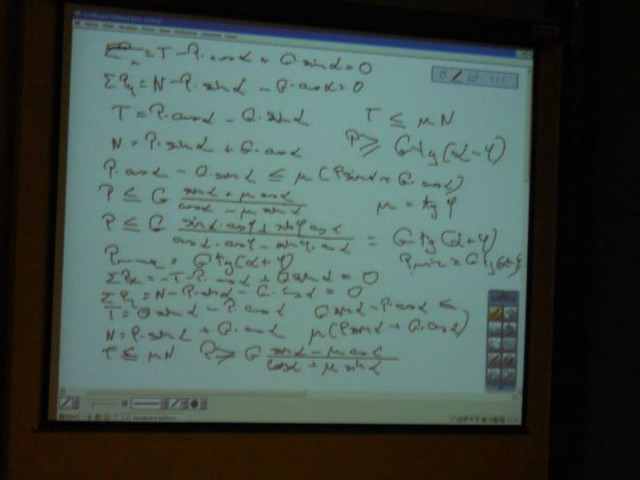 = T - P·cosα + G·sinα = 0
ΣPy = N - P·sinα - G·cosα = 0
T = P·cosα - G·sinα    T ≤ μN
N = P·sinα + G·cosα    P ≥ G tg(α-φ)
P·cosα - G·sinα ≤ μ(P sinα + G·cosα)
P ≤ G (sinα + μ cosα)/(cosα - μ sinα)    μ = tg φ
P ≤ G (sinα·cosφ + sinφ cosα)/(cosα·cosφ - sinφ·sinα) = G tg(α+φ)
Pmax = G tg(α+φ)    Pmin = G tg(α-φ)
ΣPx = -T - P·cosα + G sinα = 0
ΣPy = N - P·sinα - G·cosα = 0
T = G sinα - P·cosα    G sinα - P·cosα ≤
N = P·sinα + G·cosα    μ(P sinα + G·cosα)
T ≤ μN    P ≥ G (sinα - μ cosα)/(cosα + μ sinα)